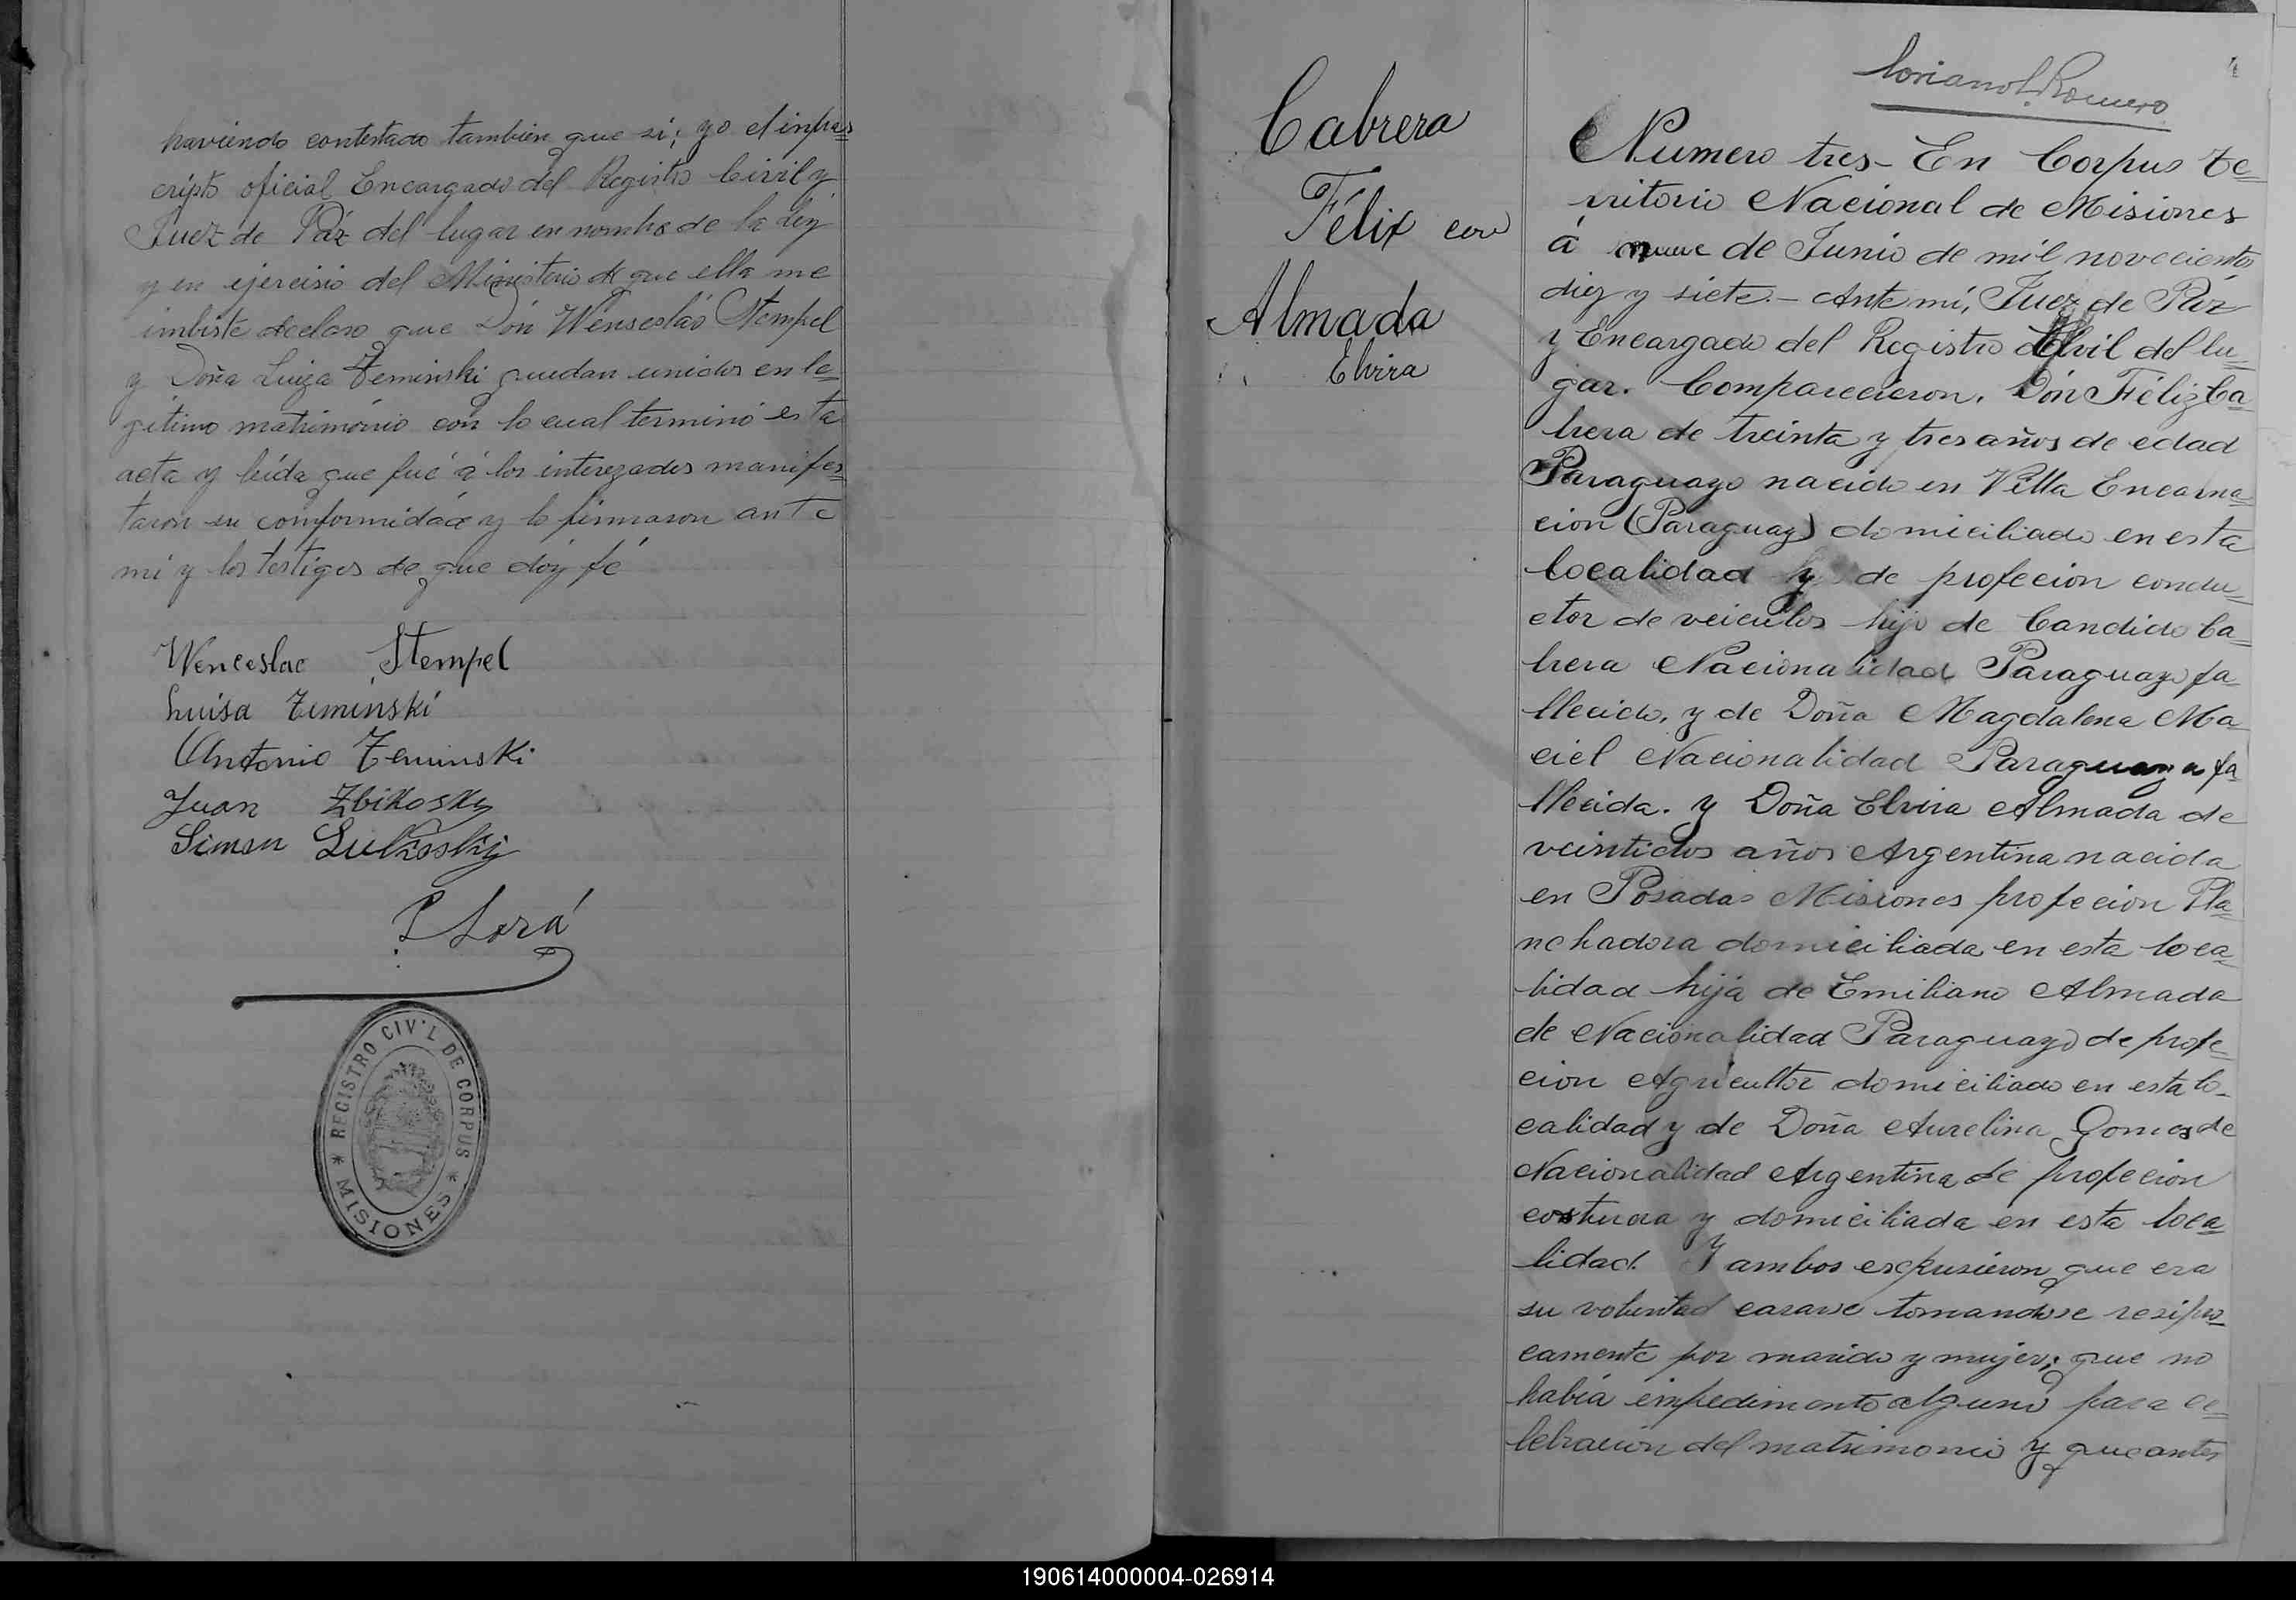 haviendo contestado tambien que si; yo el infras
cripto oficial Encargado del Registro Civil y
Juez de Páz del lugar en nombre de la Ley
y en ejercisio del Ministerio de que ella me
imbiste declaro que Don Wenseslao Stempel
y Doña Luiza Zeminski quedan unidos en le-
gitimo matrimonio con lo cual terminó esta
acta y leida que fué á los interezados manifes-
taron su comformidad y lo firmaron ante
mi y los testigos de que doy fé
Wenceslao Stempel
Luisa Ziminski
Antonio Zeminski
Juan Zbikosky
Simon Lutkoskij
P Lorá
REGISTRO CIVIL DE CORPUS
* MISIONES *
Cabrera
Félix con
Almada
Elvira
4
Romero
Numero tres - En Corpus Te-
rritorio Nacional de Misiones
á nueve de Junio de mil novecientos
diez y siete. - Ante mí, Juez de Páz
y Encargado del Registro Civil del lu-
gar. Comparecieron. Dón Féliz Ca-
brera de treinta y tres años de edad
Paraguayo nacido en Villa Encarna-
cion (Paraguay) domiciliado en esta
localidad y de profecion condu-
ctor de veiculos hijo de Candido Ca-
brera Nacionalidad Paraguayo fa-
llecido, y de Doña Magdalena Ma-
ciel Nacionalidad Paraguaya fa-
llecida. y Doña Elvira Almada de
veintidos años Argentina nacida
en Posadas Misiones profecion Pla-
nchadora domiciliada en esta loca-
lidad hija de Emiliano Almada
de Nacionalidad Paraguayo de profe-
cion Agricultor domiciliado en esta lo-
calidad y de Doña Aurelina Gomes de
Nacionalidad Argentina de profecion
costurera y domiciliada en esta loca-
lidad. Y ambos expusieron que era
su voluntad casarse tomandose resipro-
camente por marido y mujer; que no
había impedimento alguno para ce-
lebracion del matrimonio y que antes
190614000004-026914